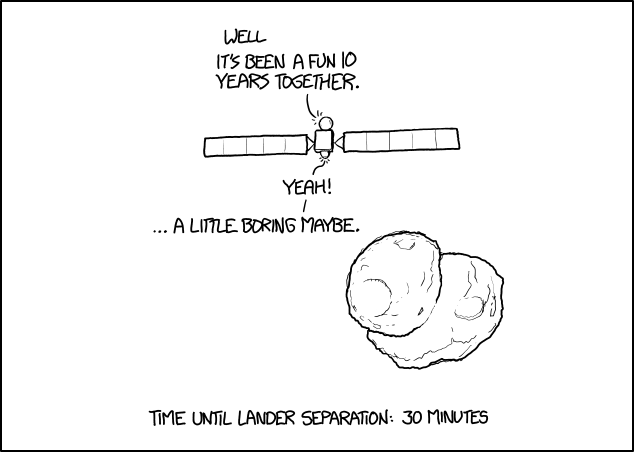 WELL
IT'S BEEN A FUN 10
YEARS TOGETHER.
YEAH!
... A LITTLE BORING MAYBE.
TIME UNTIL LANDER SEPARATION: 30 MINUTES